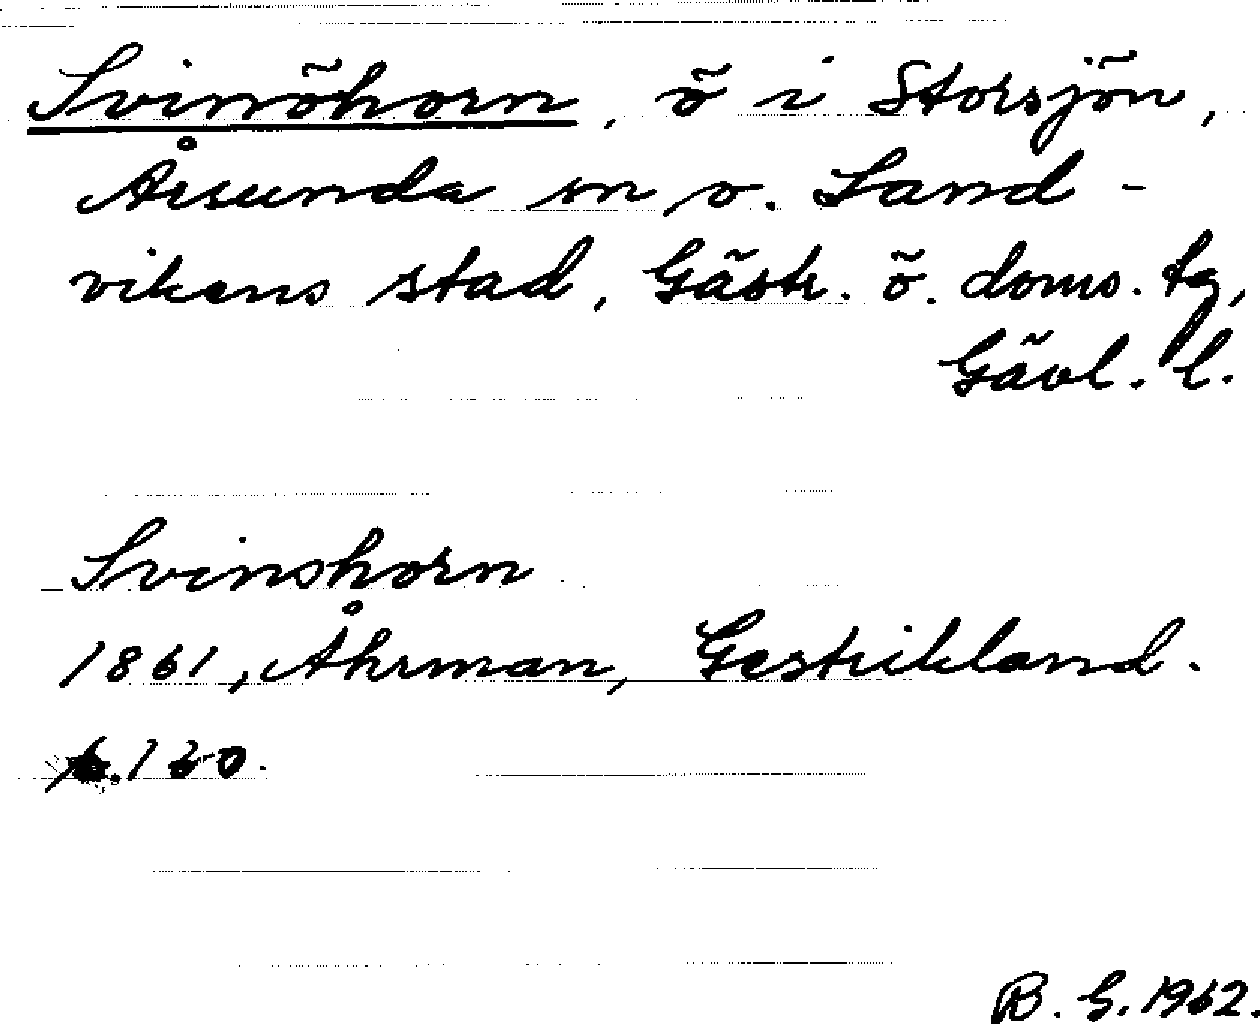 Svinöhorn, ö i Storsjön,
Årsunda sn o. Sand-
vikens stad, Gästr. ö. doms. tg,
Gävl. l.
Svinshorn
1861, Åhrman, Gestrikland.
120.
B. G. 1962.